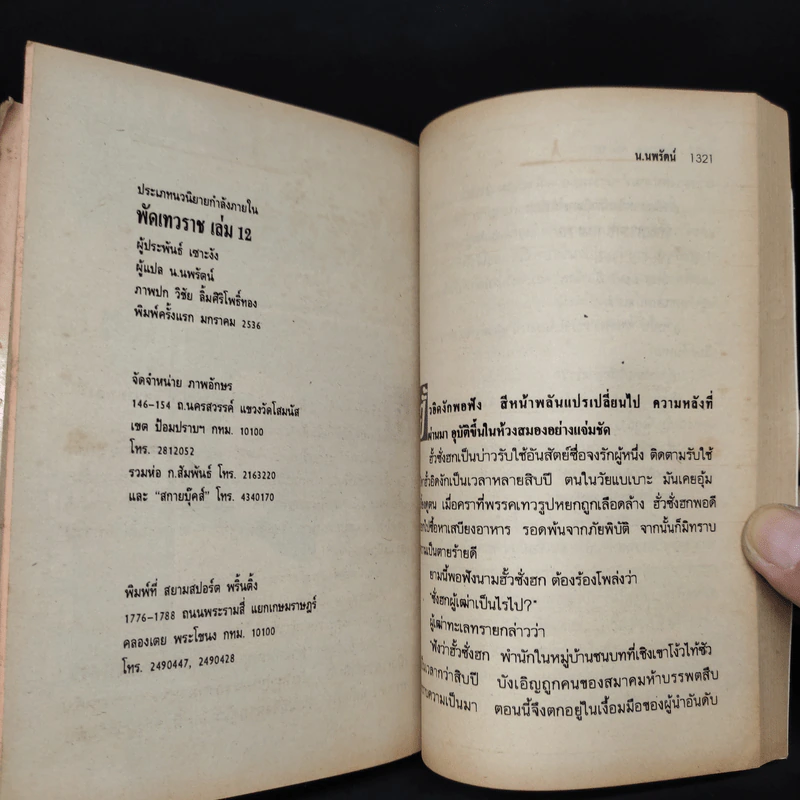 ประเภทนวนิยายกำลังภายใน
พัดเทวราช เล่ม 12
ผู้ประพันธ์ เซาะงัง
ผู้แปล น.นพรัตน์
ภาพปก วิชัย ลิ้มศิริโพธิ์ทอง
พิมพ์ครั้งแรก มกราคม 2536
จัดจำหน่าย ภาพอักษร
146-154 ถ.นครสวรรค์ แขวงวัดโสมนัส
เขต ป้อมปราบฯ กทม. 10100
โทร. 2812052
รวมห่อ ก.สัมพันธ์ โทร. 2163220
และ "สกายบุ๊คส์" โทร. 4340170
พิมพ์ที่ สยามสปอร์ต พริ้นติ้ง
1776-1788 ถนนพระรามสี่ แยกเกษมราษฎร์
คลองเตย พระโขนง กทม. 10100
โทร. 2490447, 2490428
น.นพรัตน์ 1321
สีหน้าพลันแปรเปลี่ยนไป ความหลังที่
ผ่านมา อุบัติขึ้นในห้วงสมองอย่างแจ่มชัด
ฮั้วซั่งฮกเป็นบ่าวรับใช้อันสัตย์ซื่อจงรักผู้หนึ่ง ติดตามรับใช้
ฮั้วอิดงักเป็นเวลาหลายสิบปี ตนในวัยแบเบาะ มันเคยอุ้ม
เมื่อคราที่พรรคเทวรูปหยกถูกเลือดล้าง ฮั้วซั่งฮกพอดี
ซื้อหาเสบียงอาหาร รอดพ้นจากภัยพิบัติ จากนั้นก็มิทราบ
ความเป็นตายร้ายดี
ยามนี้พอฟังนามฮั้วซั่งฮก ต้องร้องโพล่งว่า
"ซั่งฮกผู้เฒ่าเป็นไรไป?"
ผู้เฒ่าทะเลทรายกล่าวว่า
"ฟังว่าฮั้วซั่งฮก พำนักในหมู่บ้านชนบทที่เชิงเขาโง้วไท้ซัว
เป็นเวลากว่าสิบปี บังเอิญถูกคนของสมาคมห้าบรรพตสืบ
ทราบความเป็นมา ตอนนี้จึงตกอยู่ในเงื้อมมือของผู้นำอันดับ